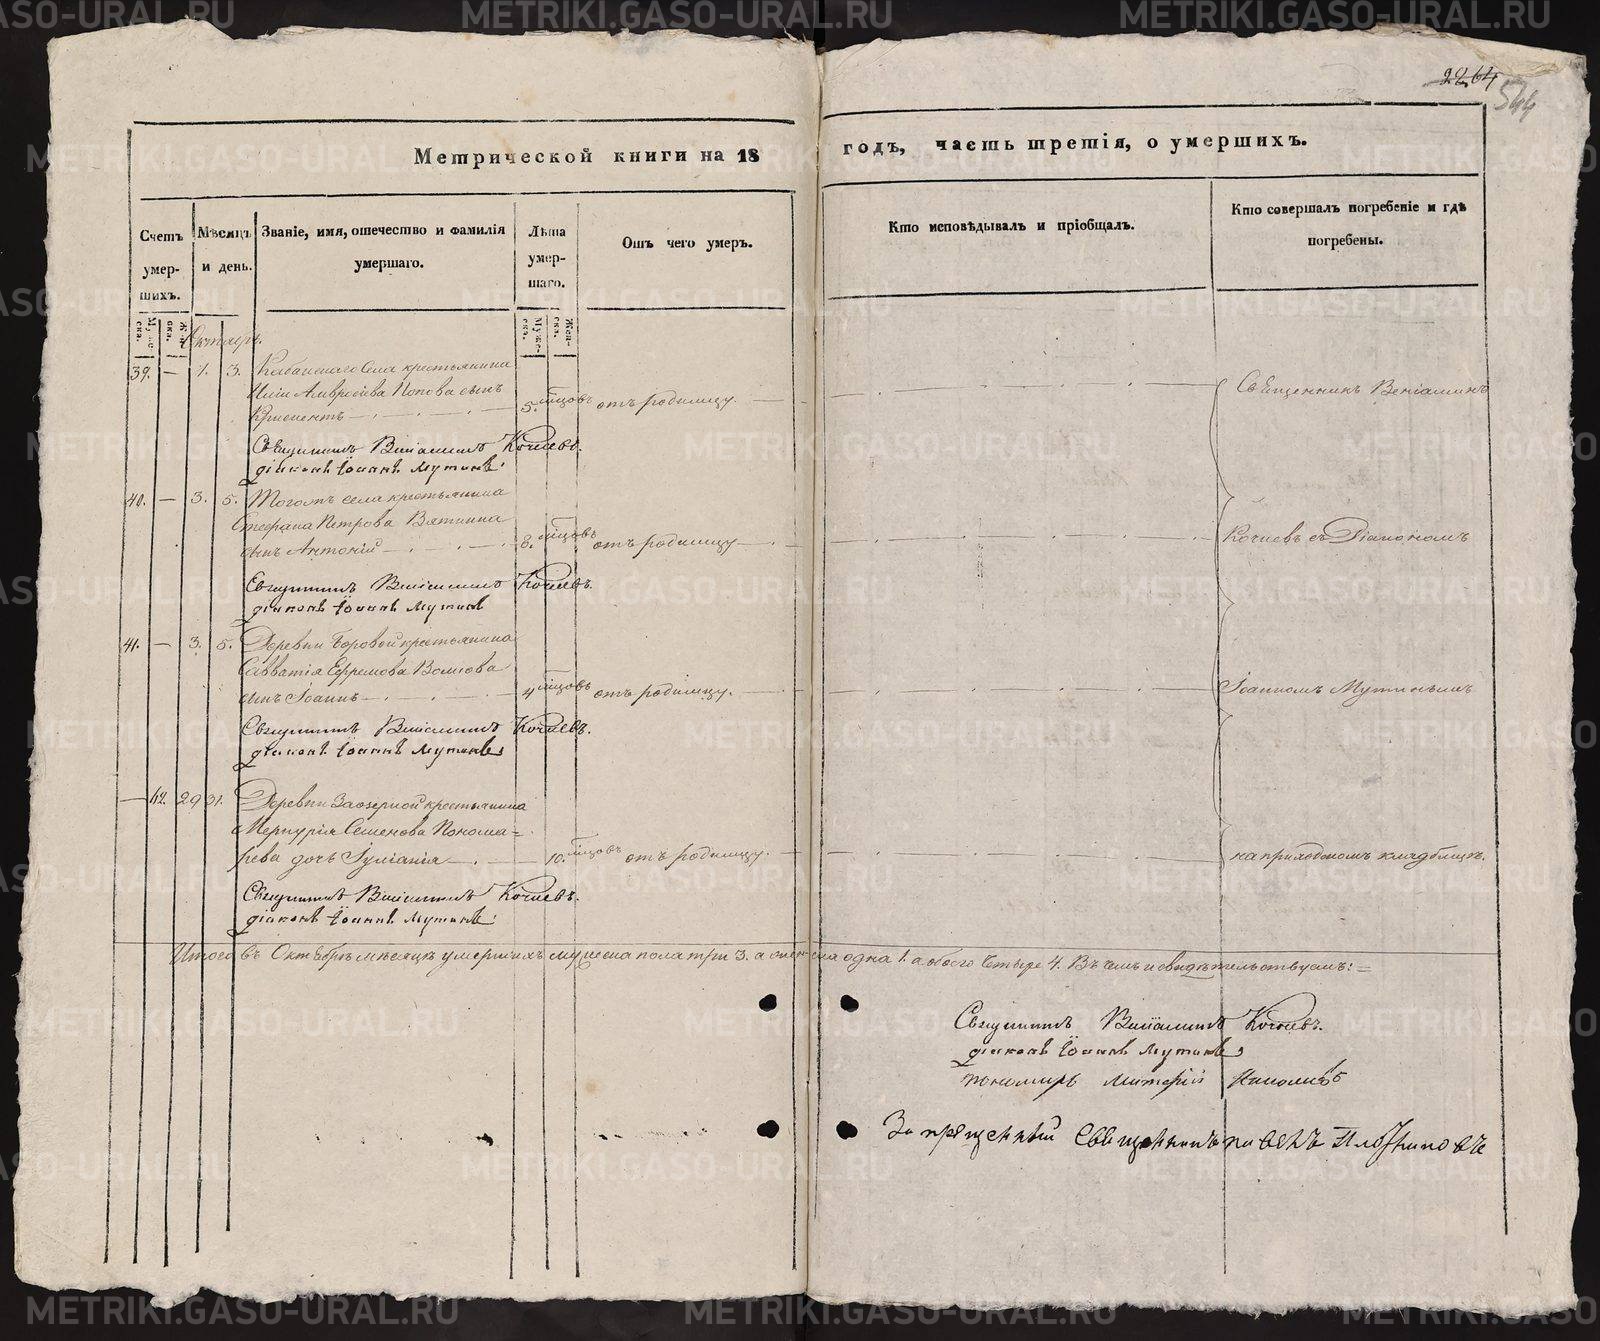 2264
544
Метрической книги на 18 годъ, часть третія, о умершихъ.
Счетъ умер-шихъ.
Мѣсяцъ и день.
Званіе, имя, отечество и фамилія умершаго.
Лѣта умер-шаго.
Отъ чего умеръ.
Кто исповѣдывалъ и пріобщалъ.
Кто совершалъ погребеніе и гдѣ погребены.
Октябрь.
39. — 1. 3. Кабанскаго Села крестьянина
Амвросіева Попова сынъ
5. мѣсцовъ отъ родимцу.
Священникъ Веніаминъ
Священникъ Веніаминъ Кочневъ.
діаконъ Іоаннъ Мутинъ
40. — 3. 5. Тогожъ села крестьянина
Стефана Петрова Вяткина
сынъ Антоній 8. мѣсцовъ отъ родимцу
Кочневъ съ Діакономъ
Священникъ Веніаминъ Кочневъ.
діаконъ Іоаннъ Мутинъ
41. — 3. 5. Деревни Боровой крестьянина
Савватія Ефремова Волкова
сынъ Іоаннъ 4 мѣсцовъ отъ родимцу.
Іоанномъ Мутинымъ
Священникъ Веніаминъ Кочневъ.
діаконъ Іоаннъ Мутинъ
— 42. 29 31. Деревни Заозерной крестьянина
Меркурія Семенова Понома=
рева дочь Іуліанія 10. мѣсцовъ отъ родимцу.
на приходскомъ кладбищѣ.
Священникъ Веніаминъ Кочневъ.
діаконъ Іоаннъ Мутинъ
Итого въ Октябрѣ мѣсяцѣ умершихъ мужеска пола три 3. а женска одна 1. а обоего четыре 4. Въ чемъ и свидѣтельствуемъ:=
Священникъ Веніаминъ Кочневъ.
діаконъ Іоаннъ Мутинъ
пономарь
Запрещенный Священникъ Плотниковъ
METRIKI.GASO-URAL.RU